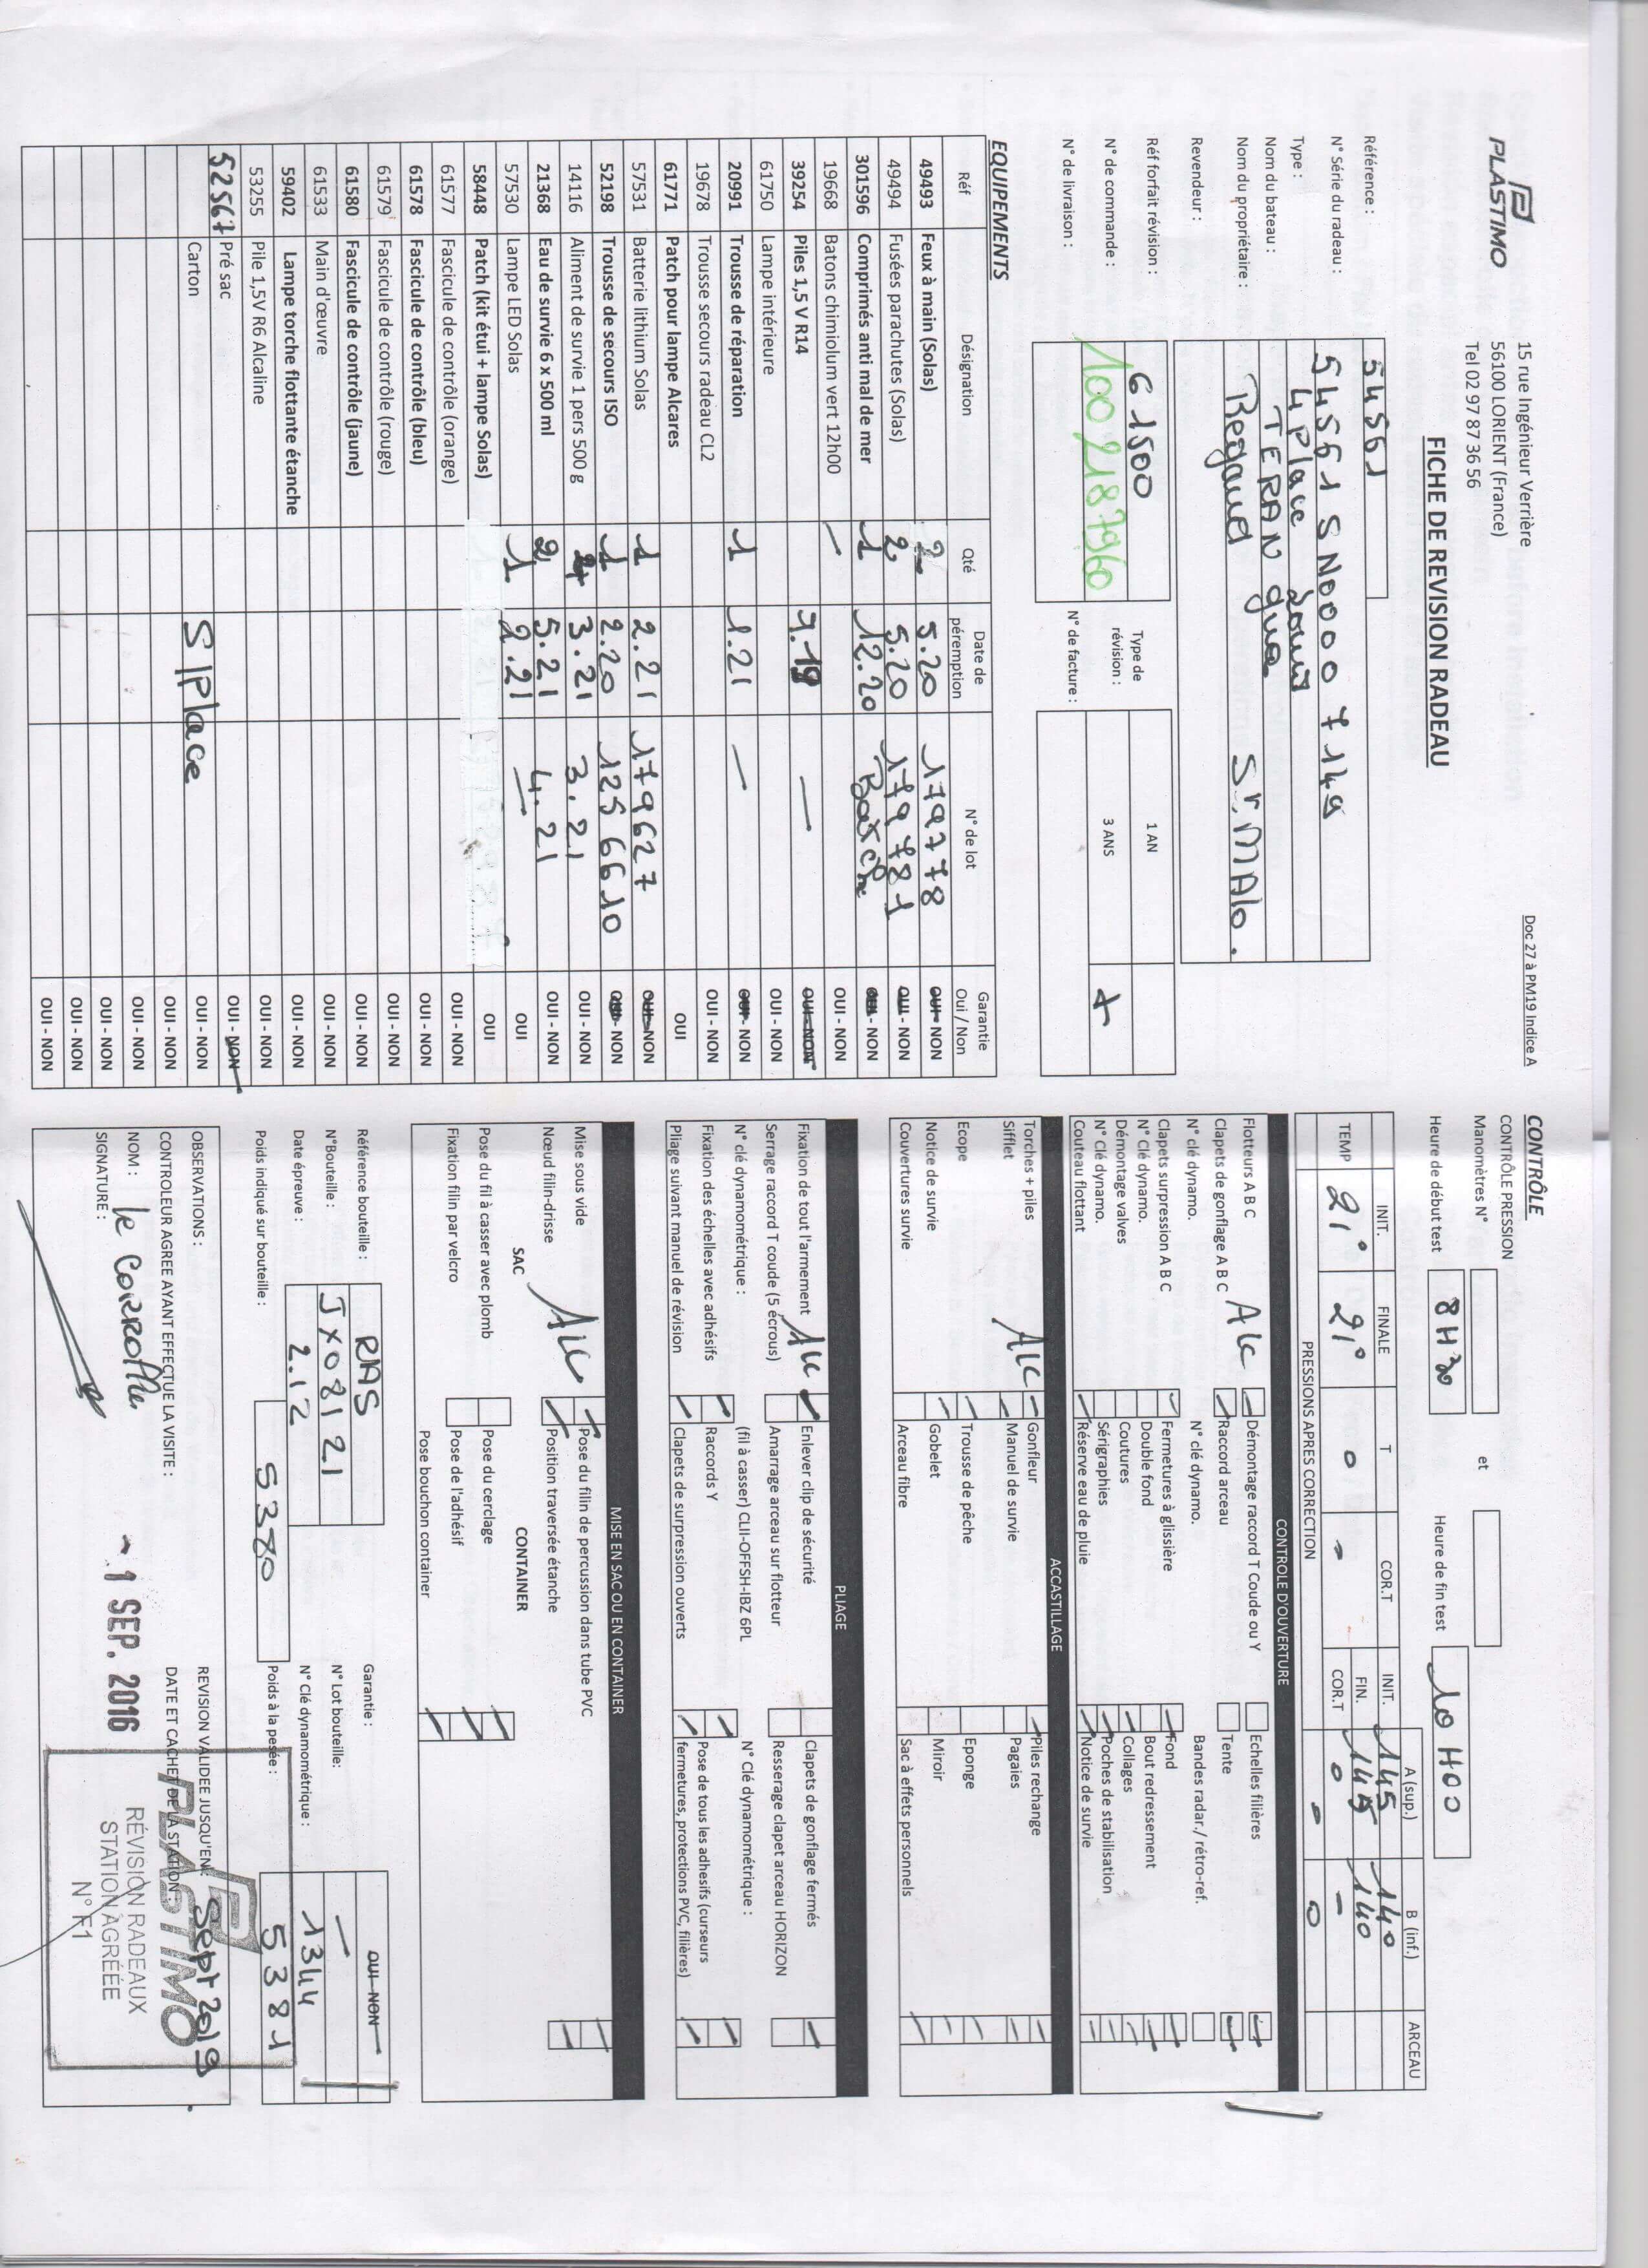 PLASTIMO
15 rue Ingénieur Verrière
56100 LORIENT (France)
Tel 02 97 87 36 56
Doc 27 à PM19 Indice A
FICHE DE REVISION RADEAU
Référence : 54561
N° Série du radeau : 54561 S N0000 7149
Type : 4 place
Nom du bateau : TERAN
Nom du propriétaire : Regaud St. MAlo.
Revendeur :
Réf forfait révision : 61500
Type de révision : 1 AN
N° de commande : 100 2187960
3 ANS X
N° de livraison :
N° de facture :
EQUIPEMENTS
Réf Désignation Qté Date de péremption N° de lot Garantie Oui / Non
49493 Feux à main (Solas) 2 5.20 179778 OUI - NON
49494 Fusées parachutes (Solas) 2 5.20 179781 OUI - NON
301596 Comprimés anti mal de mer 1 12.20 OUI - NON
19668 Batons chimiolum vert 12h00 — OUI - NON
39254 Piles 1,5 V R14 — OUI - NON
61750 Lampe intérieure OUI - NON
20991 Trousse de réparation 1 1.21 — OUI - NON
19678 Trousse secours radeau CL2 OUI - NON
61771 Patch pour lampe Alcares OUI
57531 Batterie lithium Solas 1 2.21 179627 OUI - NON
52198 Trousse de secours ISO 1 2.20 1256610 OUI - NON
14116 Aliment de survie 1 pers 500 g 3.21 3.21 OUI - NON
21368 Eau de survie 6 x 500 ml 2 5.21 4.21 OUI - NON
57530 Lampe LED Solas 1 2.21 — OUI
58448 Patch (kit étui + lampe Solas) OUI
61577 Fascicule de contrôle (orange) OUI - NON
61578 Fascicule de contrôle (bleu) OUI - NON
61579 Fascicule de contrôle (rouge) OUI - NON
61580 Fascicule de contrôle (jaune) OUI - NON
61533 Main d'œuvre OUI - NON
59402 Lampe torche flottante étanche OUI - NON
53255 Pile 1,5V R6 Alcaline OUI - NON
52567 Pré sac OUI - NON
Carton S/Place OUI - NON
OUI - NON
OUI - NON
OUI - NON
OUI - NON
OUI - NON
CONTRÔLE
CONTRÔLE PRESSION
Manomètres N° et
Heure de début test 8H30 Heure de fin test 10H00
INIT. FINALE T COR.T A (sup.) B (inf.) ARCEAU
TEMP 21° 21° 0 - INIT. 145 140
FIN. 145 140
PRESSIONS APRES CORRECTION COR.T 0 -
- 0
CONTROLE D'OUVERTURE
Flotteurs A B C Démontage raccord T Coude ou Y Echelles filières
Clapets de gonflage A B C Raccord arceau Tente
N° clé dynamo. N° clé dynamo. Bandes radar./ rétro-ref.
Clapets surpression A B C Fermetures à glissière Fond
N° Clé dynamo. Double fond Bout redressement
Démontage valves Coutures Collages
N° Clé dynamo. Sérigraphies Poches de stabilisation
Couteau flottant Réserve eau de pluie Notice de survie
ACCASTILLAGE
Torches + piles Gonfleur Piles rechange
Sifflet Manuel de survie Pagaies
Ecope Trousse de pêche Eponge
Notice de survie Gobelet Miroir
Couvertures survie Arceau fibre Sac à effets personnels
PLIAGE
Fixation de tout l'armement Enlever clip de sécurité Clapets de gonflage fermés
Serrage raccord T coude (5 écrous) Amarrage arceau sur flotteur Resserage clapet arceau HORIZON
N° clé dynamométrique : (fil à casser) CLII-OFFSH-IBZ 6PL N° Clé dynamométrique :
Fixation des échelles avec adhésifs Raccords Y Pose de tous les adhesifs (curseurs
Pliage suivant manuel de révision Clapets de surpression ouverts fermetures, protections PVC, filières)
MISE EN SAC OU EN CONTAINER
Mise sous vide Pose du filin de percussion dans tube PVC
Nœud filin-drisse Position traversée étanche
SAC CONTAINER
Pose du fil à casser avec plomb Pose du cerclage
Fixation filin par velcro Pose de l'adhésif
Pose bouchon container
Référence bouteille : RAS Garantie : OUI - NON
N°Bouteille : JX08121 N° Lot bouteille: —
Date épreuve : 2.12 N° Clé dynamométrique : 1344
Poids indiqué sur bouteille : 5380 Poids à la pesée : 5381
OBSERVATIONS : REVISION VALIDEE JUSQU'EN : Sept 2019
CONTROLEUR AGREE AYANT EFFECTUE LA VISITE : DATE ET CACHET DE LA STATION :
NOM :
SIGNATURE :
- 1 SEP. 2016
PLASTIMO
RÉVISION RADEAUX
STATION AGRÉÉE
N° F1